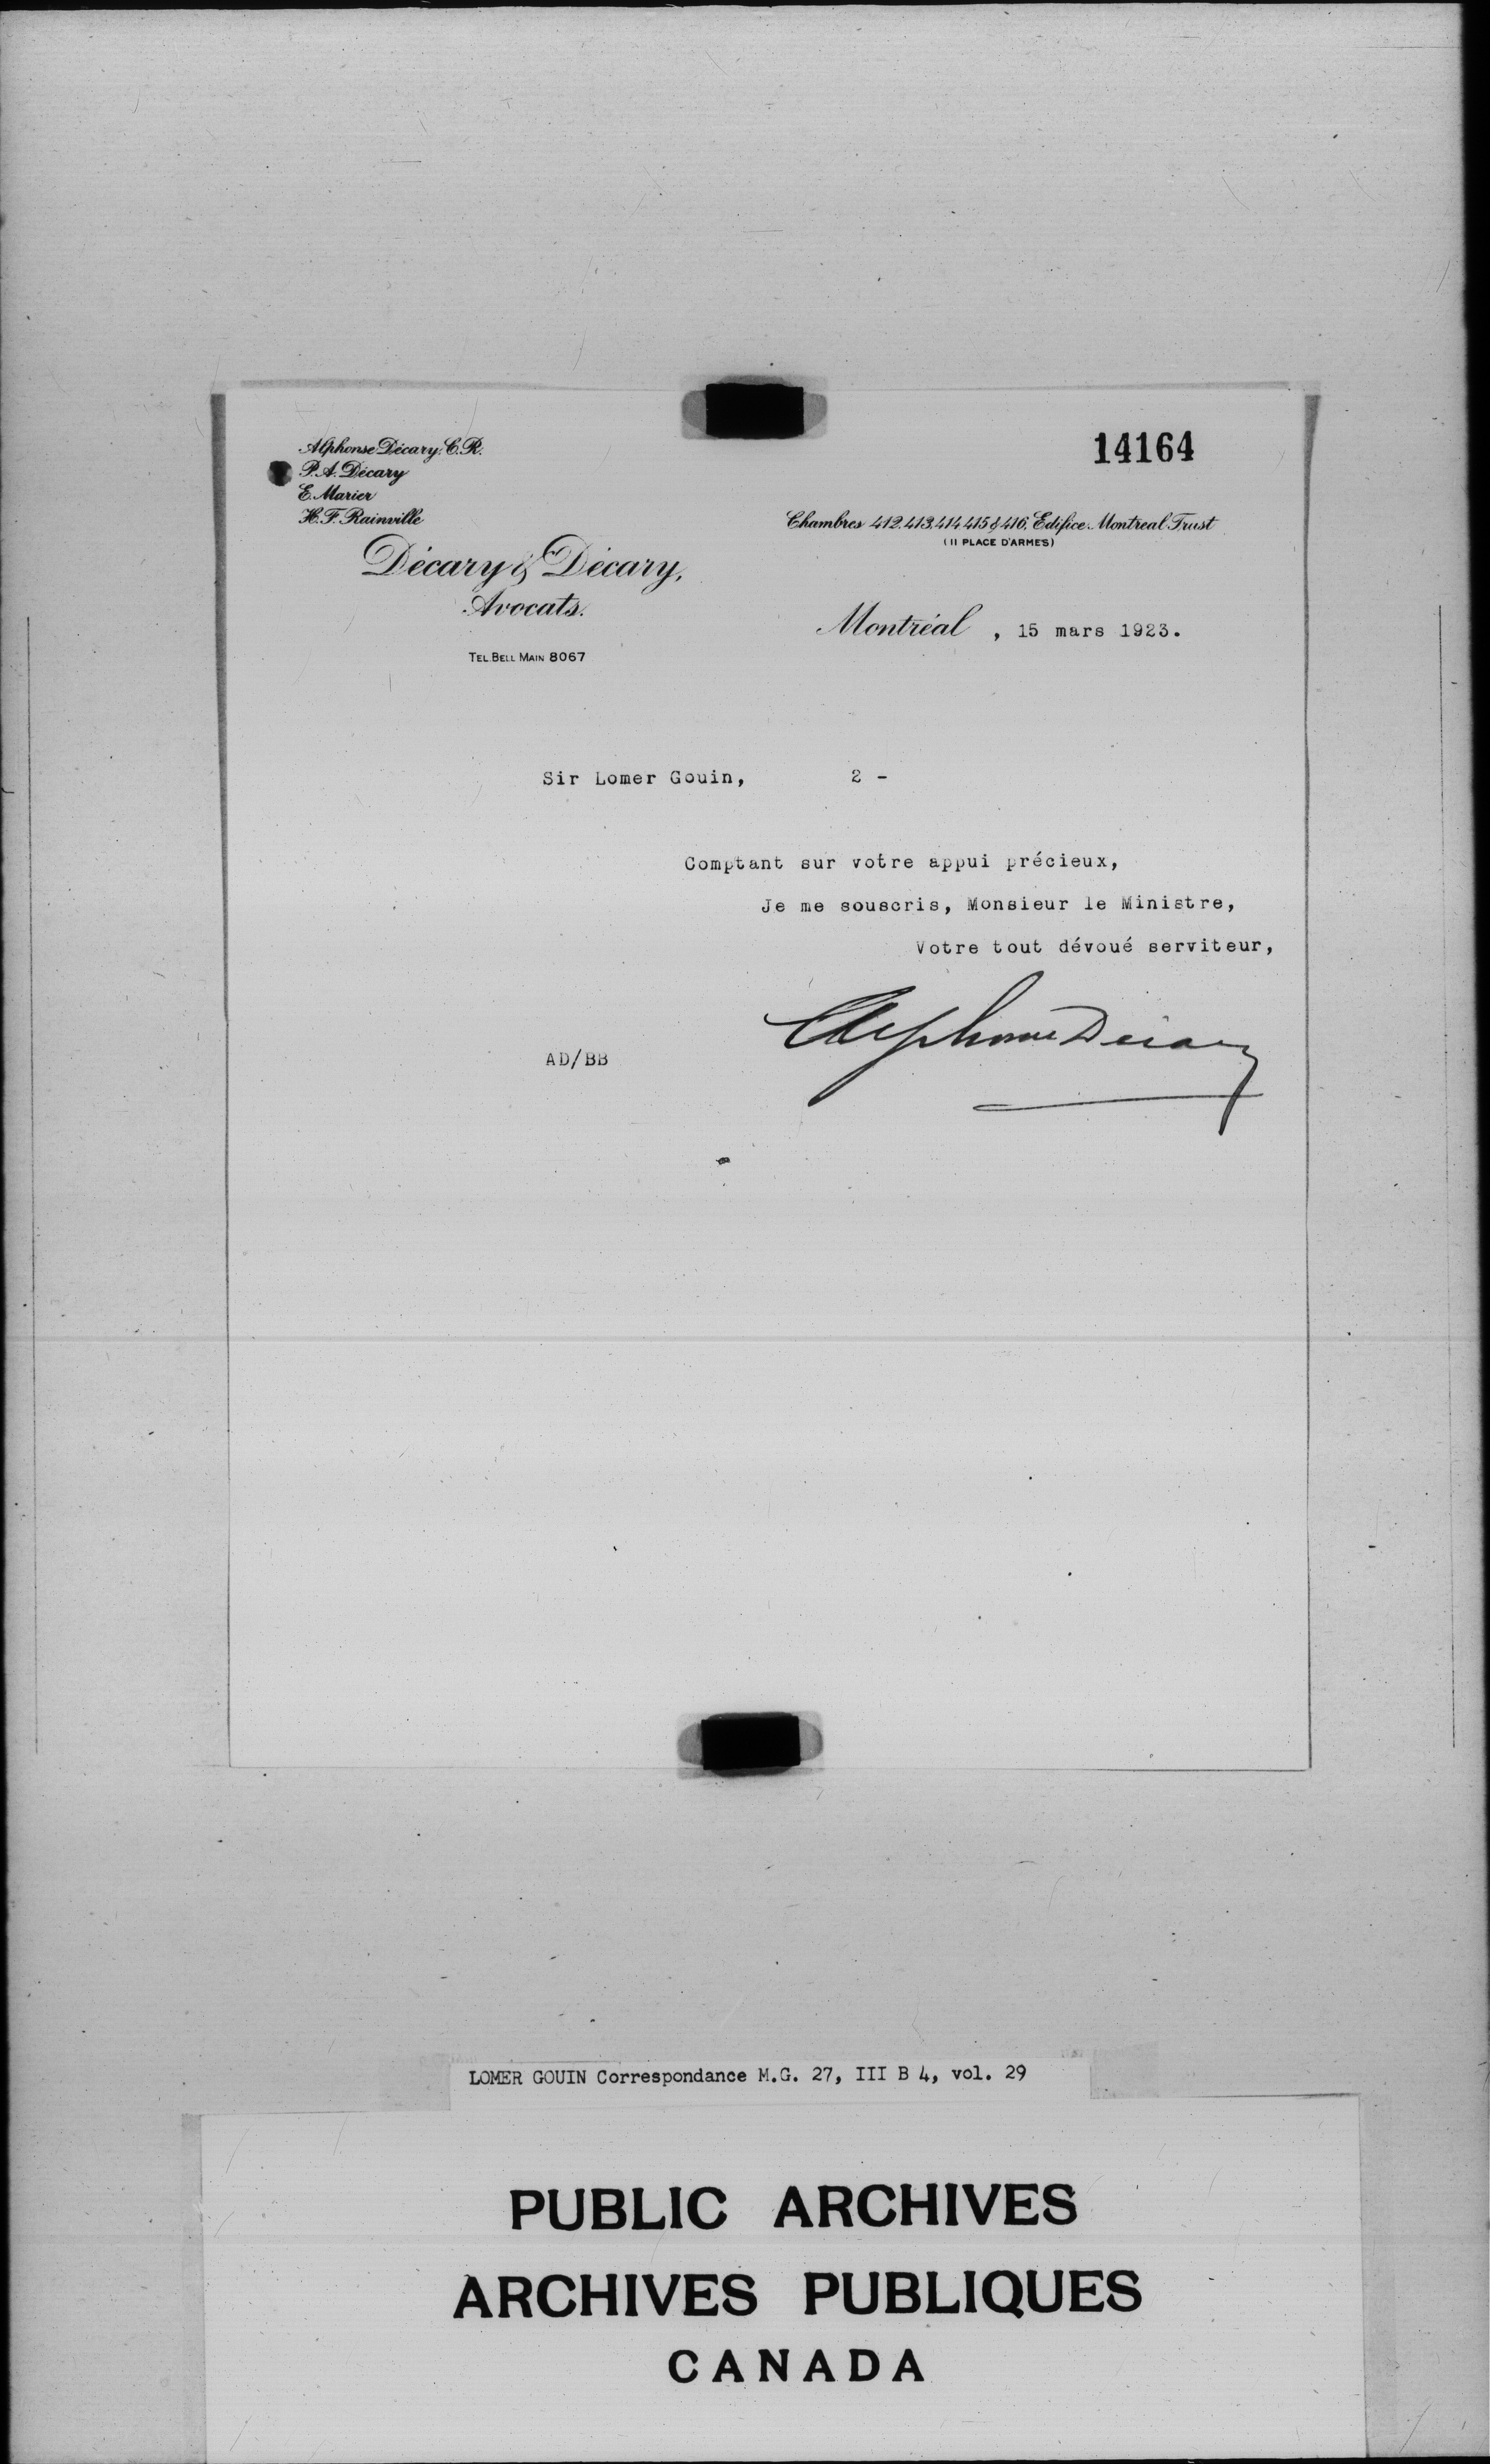 14164
Alphonse Décary, C.R.
P.A. Décary
E. Marier
H.F. Rainville
Chambres 412, 413, 414, 415 & 416, Edifice Montreal Trust
(11 PLACE D'ARMES)
Décary & Décary,
Avocats.
TEL. BELL MAIN 8067
Montréal , 15 mars 1923.
Sir Lomer Gouin, 2 -
Comptant sur votre appui précieux,
Je me souscris, Monsieur le Ministre,
Votre tout dévoué serviteur,
Alphonse Décary
AD/BB
LOMER GOUIN Correspondance M.G. 27, III B 4, vol. 29
PUBLIC ARCHIVES
ARCHIVES PUBLIQUES
CANADA